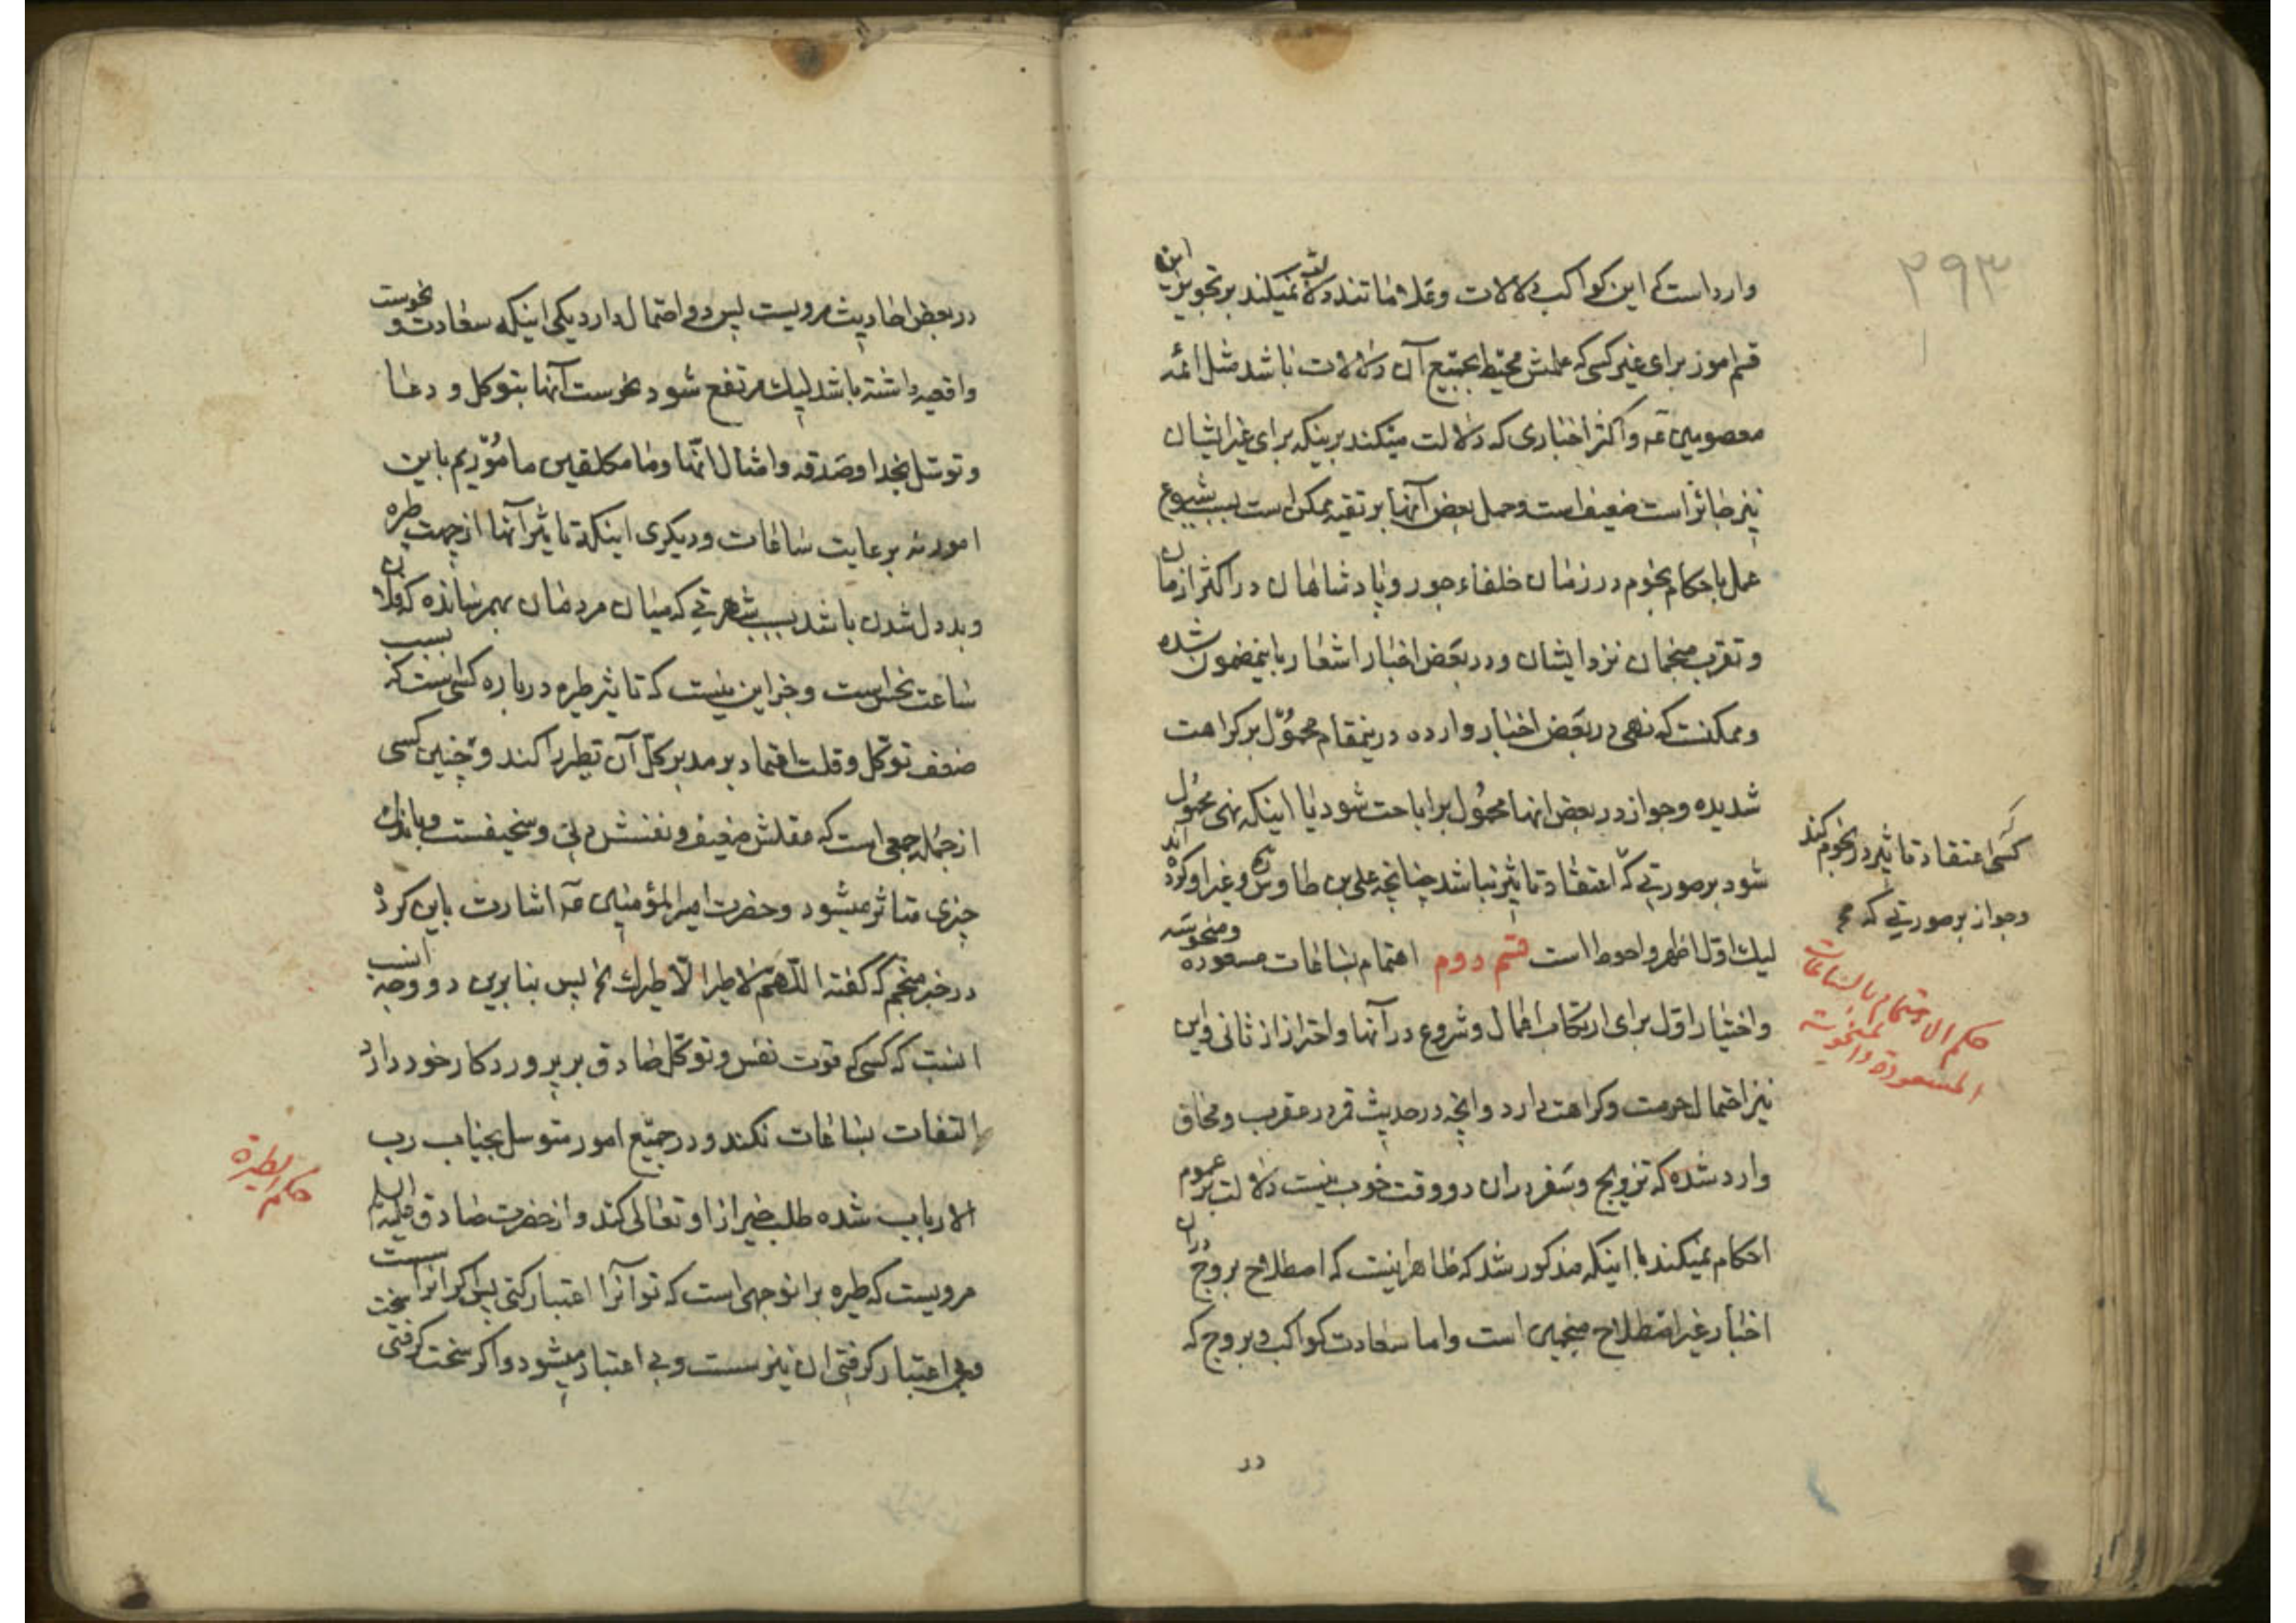 ۲۹۳
وارد است که این کواکب دلالات و علاماتند دلالت نمیکند بر تجویز این
قسم اموز برای غیر کسی که علمش محیط بجمیع آن دلالات باشد مثل ائمه
معصومین عه واکثر اخباری که دلالت میکند برینکه برای غیر ایشان
نیز جائز است ضعیف است وحمل بعض آنها بر تقیه ممکن است بسبب شیوع
عمل باحکام نجوم در زمان خلفاء جور و پادشاهان در اکثر ازمان
و تقرب منجمان نزد ایشان ودر بعض اخبار اشعار باینمضمون شده
وممکنست که نهی در بعض اخبار وارده درینمقام محمول بر کراهت
شدیده وجواز در بعض انها محمول بر اباحت شود یا اینکه نهی محمول
شود بر صورتی که اعتقاد تاثیر نباشد چنانچه علی بن طاوس ره وغیر او کرده اند
لیک اول اظهر واحوط است قسم دوم اهتمام بساعات مسعوده ومنحوسه
واختیار اول برای ارتکاب اعمال وشروع در آنها واحتراز از ثانی واین
نیز احتمال حرمت وکراهت دارد وانچه در حدیث قمر در عقرب ومحاق
وارد شده که تزویج وسفر در ان دو وقت خوب نیست دلالت بر عموم
احکام نمیکند با اینکه مذکور شد که ظاهر نیست که اصطلاح بروج دران
اخبار غیر اصطلاح منجمین است واما سعادت کواکب و بروج که
در
کسی اعتقاد تاثیر در نجوم کند
وجواز بر صورتی که
حکم الاهتمام بالساعات
المسعودة والمنحوسة
در بعض احادیث مرویست پس دو احتمال دارد یکی اینکه سعادت و نحوست
واقعیه داشته باشد لیک مرتفع شود نحوست آنها بتوکل و دعا
و توسل بخدا وصدقه وامثال انها وما مکلفین مامؤریم باین
امور نه برعایت ساعات ودیکری اینکه تاثیر آنها از جهت طیره
وبد دل شدن باشد بسبب شهرتی که میان مردمان بهمرسانده که فلان
ساعت نحس است وجز این نیست که تاثیر طیره در باره کسی ست که بسبب
ضعف توکل وقلت اعتماد بر مدبر کل آن تطیر را کند و چنین کسی
از جمله جمعی است که عقلش ضعیف و نفسش دنی وسخیفست وباندک
چیزی متاثر میشود وحضرت امیر المؤمنین عه اشارت باین کرد
در خبر منجم که گفته اللهم لا طیر الا طیرک الخ پس بنا برین دو وجه انسب
انست که کسی که قوت نفس وتوکل صادق بر پروردکار خود دارد
التفات بساعات نکند ودر جمیع امور متوسل بجناب رب
الارباب شده طلب خیر از او تعالی کند واز حضرت صادق علیه السلم
مرویست که طیره برانوجهی است که تو آنرا اعتبار کنی پس اکر انرا سست
وبی اعتبار کرفتی ان نیز سست وبی اعتبار میشود واکر سخت کرفتی سخت
حکم الطیرة